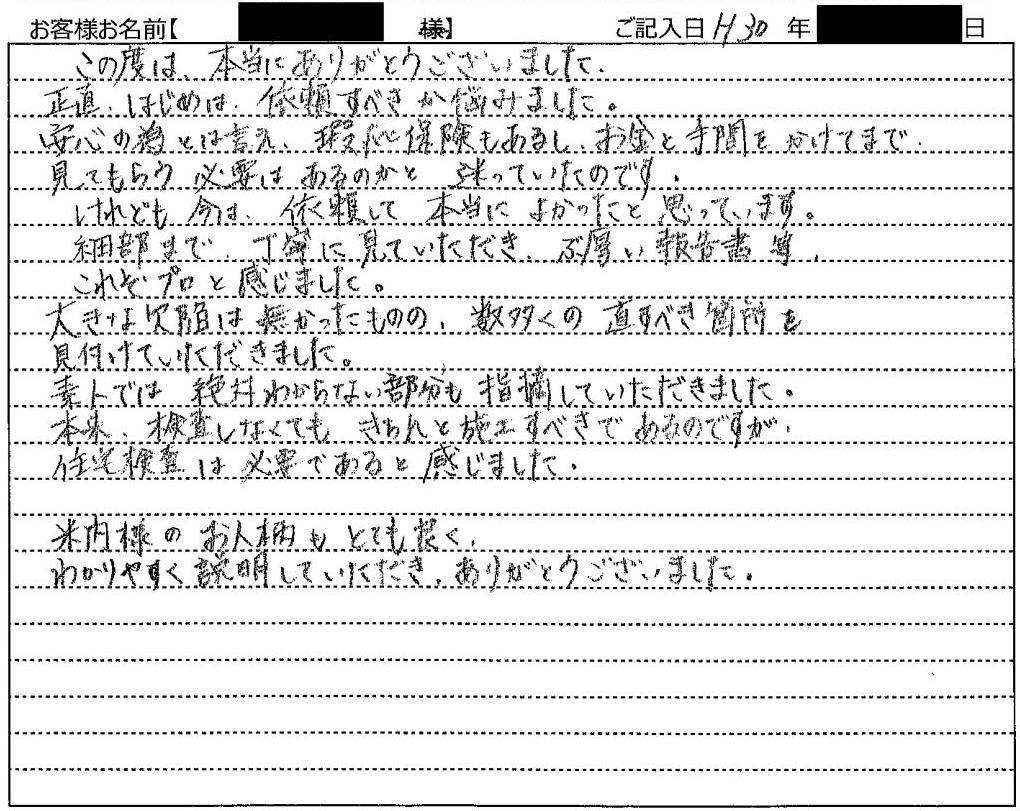 お客様お名前【 様】 ご記入日 H30 年 日
この度は、本当にありがとうございました.
正直、はじめは、依頼すべきか悩みました。
安心の為とは言え、瑕疵保険もあるし、お金と手間をかけてまで、
見てもらう必要はあるのかと 迷っていたのです.
けれども今は、依頼して本当によかったと思っています。
細部まで、丁寧に見ていただき、ぶ厚い報告書等、
これぞプロと感じました。
大きな欠陥は無かったものの、数多くの直すべき箇所を
見付けていただきました。
素人では絶対わからない部分も指摘していただきました。
本来、検査しなくてもきちんと施工すべきであるのですが、
住宅検査は必要であると感じました.
米内様のお人柄もとても良く、
わかりやすく説明していただき、ありがとうございました.